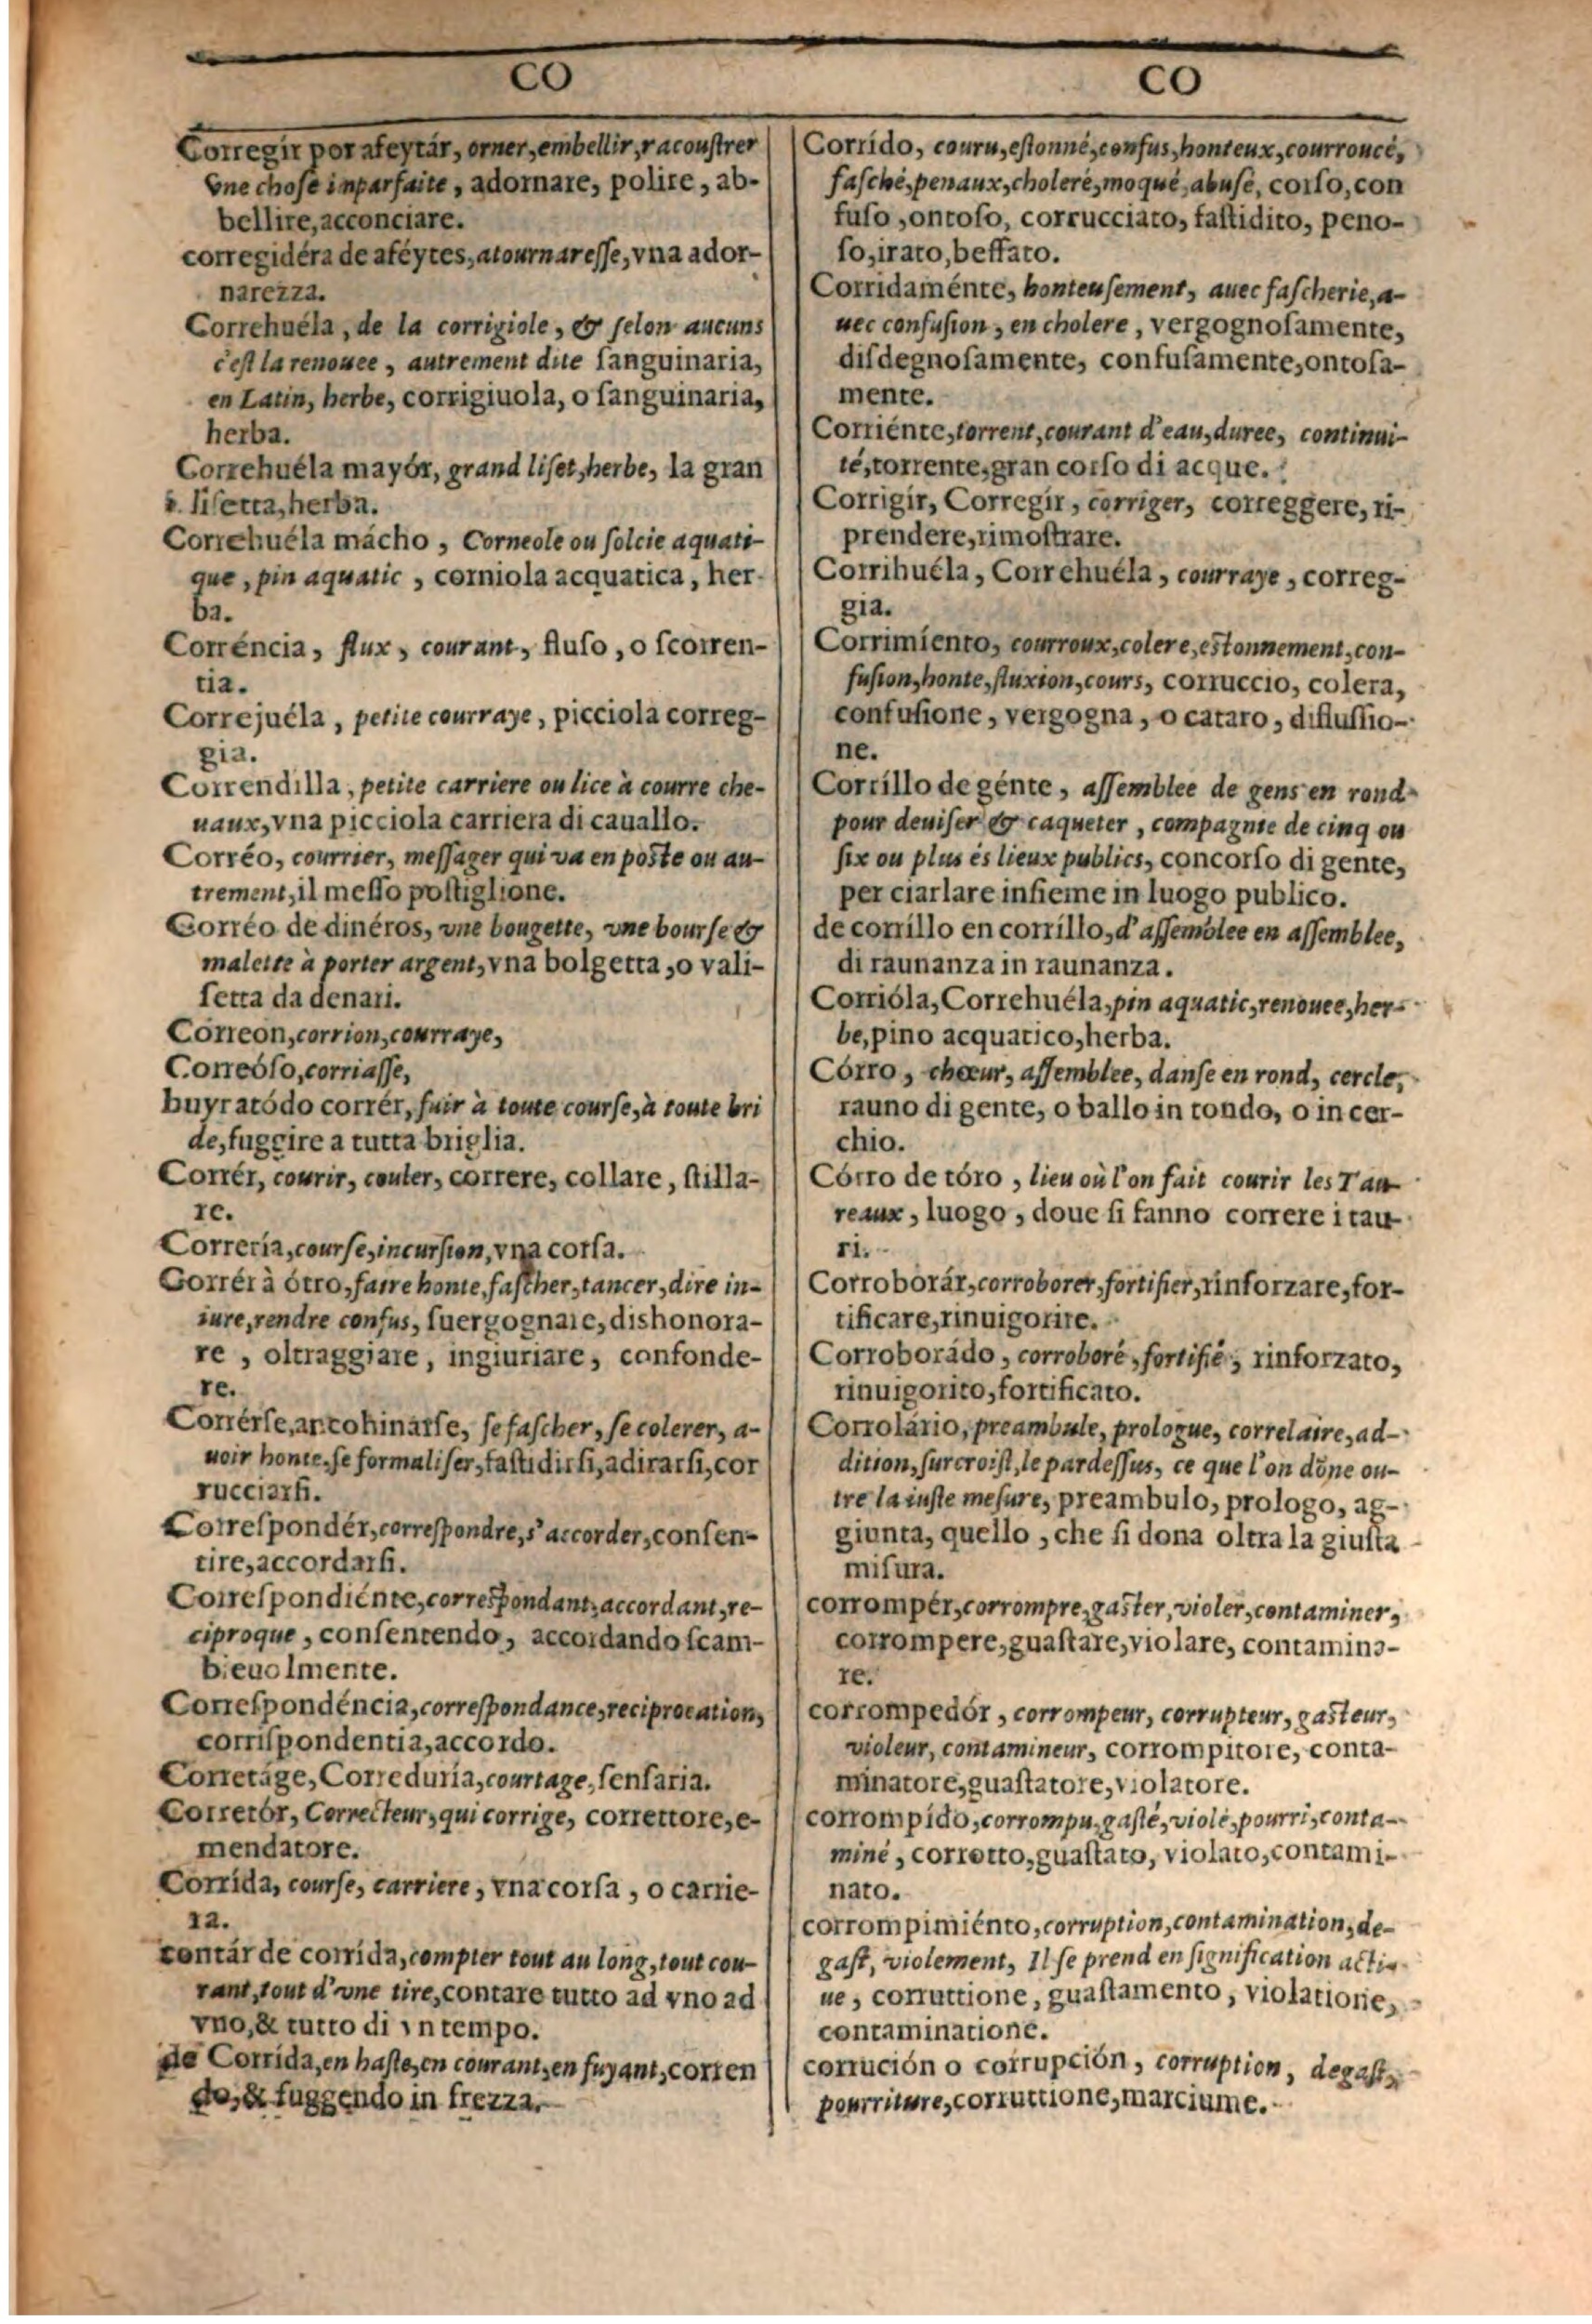 CO
Corregir por afeytár, orner, embellir, racouſtrer
vne choſe inparfaite, adornare, polire, ab-
bellire, acconciare.
corregidéra de aféytes, atournareſſe, vna ador-
narezza.
Correhuéla, de la corrigiole, & ſelon aucuns
c'eſt la renouee, autrement dite ſanguinaria,
en Latin, herbe, corrigiuola, o ſanguinaria,
herba.
Correhuéla mayór, grand liſet, herbe, la gran
liſetta, herba.
Correhuéla mácho, Corneole ou ſolcie aquati-
que, pin aquatic, corniola acquatica, her-
ba.
Corréncia, flux, courant, fluſo, o ſcorren-
tia.
Correjuéla, petite courraye, picciola correg-
gia.
Correndilla, petite carriere ou lice à courre che-
uaux, vna picciola carriera di cauallo.
Corréo, courrier, meſſager qui va en poſte ou au-
trement, il meſſo poſtiglione.
Corréo de dinéros, vne bougette, vne bourſe &
malette à porter argent, vna bolgetta, o vali-
ſetta da denari.
Córreon, corrion, courraye,
Correóſo, corriaſſe,
huyr atódo corrér, fuir à toute courſe, à toute bri
de, fuggire a tutta briglia.
Corrér, courir, couler, correre, collare, ſtilla-
re.
Correría, courſe, incurſion, vna corſa.
Corrér à ótro, faire honte, faſcher, tancer, dire in-
iure, rendre confus, ſuergognare, dishonora-
re, oltraggiare, ingiuriare, confonde-
re.
Corrérſe, amohinarſe, ſe faſcher, ſe colerer, a-
uoir honte, ſe formaliſer, faſtidirſi, adirarſi, cor
rucciarſi.
Correſpondér, correſpondre, s'accorder, conſen-
tire, accordarſi.
Correſpondiénte, correſpondant, accordant, re-
ciproque, conſentendo, accordando ſcam-
bieuolmente.
Correſpondéncia, correſpondance, reciprocation,
corriſpondentia, accordo.
Corretáge, Correduría, courtage, ſenſaria.
Corretór, Correcteur, qui corrige, correttore, e-
mendatore.
Corrída, courſe, carriere, vna corſa, o carrie-
ra.
contár de corrída, compter tout au long, tout cou-
rant, tout d'vne tire, contare tutto ad vno ad
vno, & tutto di vn tempo.
de Corrída, en haſte, en courant, en fuyant, corren
do, & fuggendo in frezza.
CO
Corrído, couru, eſtonné, confus, honteux, courroucé,
faſché, penaux, choleré, moqué, abuſé, corſo, con
fuſo, ontoſo, corrucciato, faſtidito, peno-
ſo, irato, beffato.
Corridaménte, honteuſement, auec faſcherie, a-
uec confuſion, en cholere, vergognoſamente,
diſdegnoſamente, confuſamente, ontoſa-
mente.
Corriénte, torrent, courant d'eau, duree, continui-
té, torrente, gran corſo di acque.
Corrigír, Corregír, corriger, correggere, ri-
prendere, rimoſtrare.
Corrihuéla, Correhuéla, courraye, correg-
gia.
Corrimíento, courroux, colere, eſtonnement, con-
fuſion, honte, fluxion, cours, corruccio, colera,
confuſione, vergogna, o cataro, difluſſio-
ne.
Corríllo de génte, aſſemblee de gens en rond
pour deuiſer & caqueter, compagnie de cinq ou
ſix ou plus és lieux publics, concorſo di gente,
per ciarlare inſieme in luogo publico.
de corríllo en corríllo, d'aſſemblee en aſſemblee,
di raunanza in raunanza.
Corrióla, Correhuéla, pin aquatic, renouee, her-
be, pino acquatico, herba.
Córro, chœur, aſſemblee, danſe en rond, cercle,
rauno di gente, o ballo in tondo, o in cer-
chio.
Córro de tóro, lieu où l'on fait courir les Tau-
reaux, luogo, doue ſi fanno correre i tau-
ri.
Corroborár, corroborer, fortifier, rinforzare, for-
tificare, rinuigorire.
Corroborádo, corroboré, fortifié, rinforzato,
rinuigorito, fortificato.
Corrolário, preambule, prologue, correlaire, ad-
dition, ſurcroiſt, le pardeſſus, ce que l'on dõne ou-
tre la iuſte meſure, preambulo, prologo, ag-
giunta, quello, che ſi dona oltra la giuſta
miſura.
corrompér, corrompre, gaſter, violer, contaminer,
corrompere, guaſtare, violare, contamina-
re.
corrompedór, corrompeur, corrupteur, gaſteur,
violeur, contamineur, corrompitore, conta-
minatore, guaſtatore, violatore.
corrompído, corrompu, gaſté, violé, pourri, conta-
miné, corrotto, guaſtato, violato, contami-
nato.
corrompimiénto, corruption, contamination, de-
gaſt, violement, Il ſe prend en ſignification acti-
ue, corruttione, guaſtamento, violatione,
contaminatione.
corrución o corrupción, corruption, degaſt,
pourriture, corruttione, marciume.